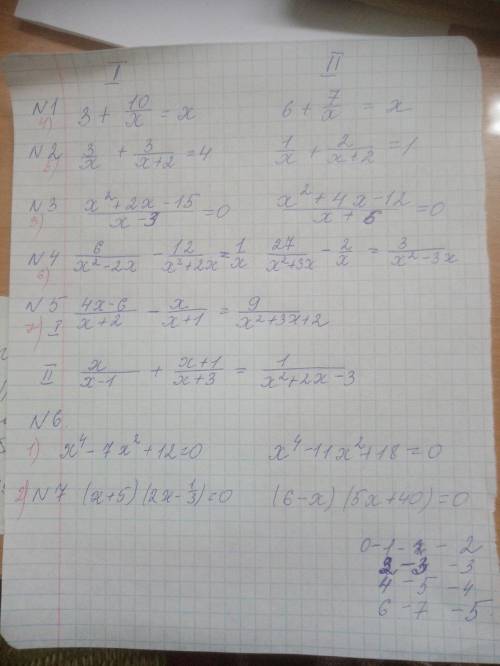 I II
N1 4) 3 + 10/x = x 6 + 7/x = x
N2 5) 3/x + 3/(x+2) = 4 1/x + 2/(x+2) = 1
N3 3) (x²+2x-15)/(x-3) = 0 (x²+4x-12)/(x+6) = 0
N4 6) 6/(x²-2x) - 12/(x²+2x) = 1/x 27/(x²+3x) - 2/x = 3/(x²-3x)
N5 7) I (4x-6)/(x+2) - x/(x+1) = 9/(x²+3x+2)
II x/(x-1) + (x+1)/(x+3) = 1/(x²+2x-3)
N6
1) x⁴-7x²+12=0 x⁴-11x²+18=0
2) N7 (x+5)(2x-1/3)=0 (6-x)(5x+40)=0
0-1-2
2-3-3
4-5-4
6-7-5